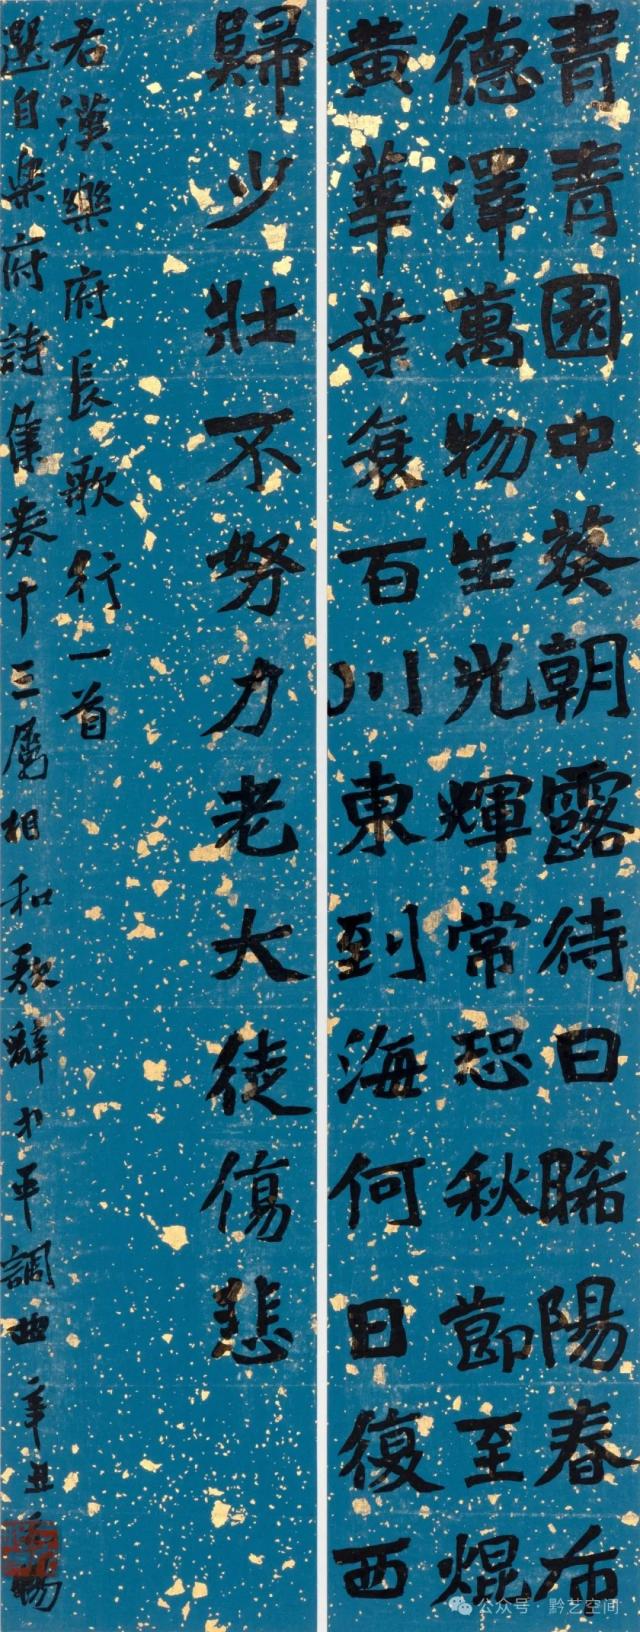 青青園中葵朝露待日晞陽春布
德澤萬物生光輝常恐秋節至焜
黃華葉衰百川東到海何日復西
歸少壯不努力老大徒傷悲
右漢樂府長歌行一首
選自樂府詩集卷十三屬相和歌辭中平調曲辛丑
公众号·黔艺空间